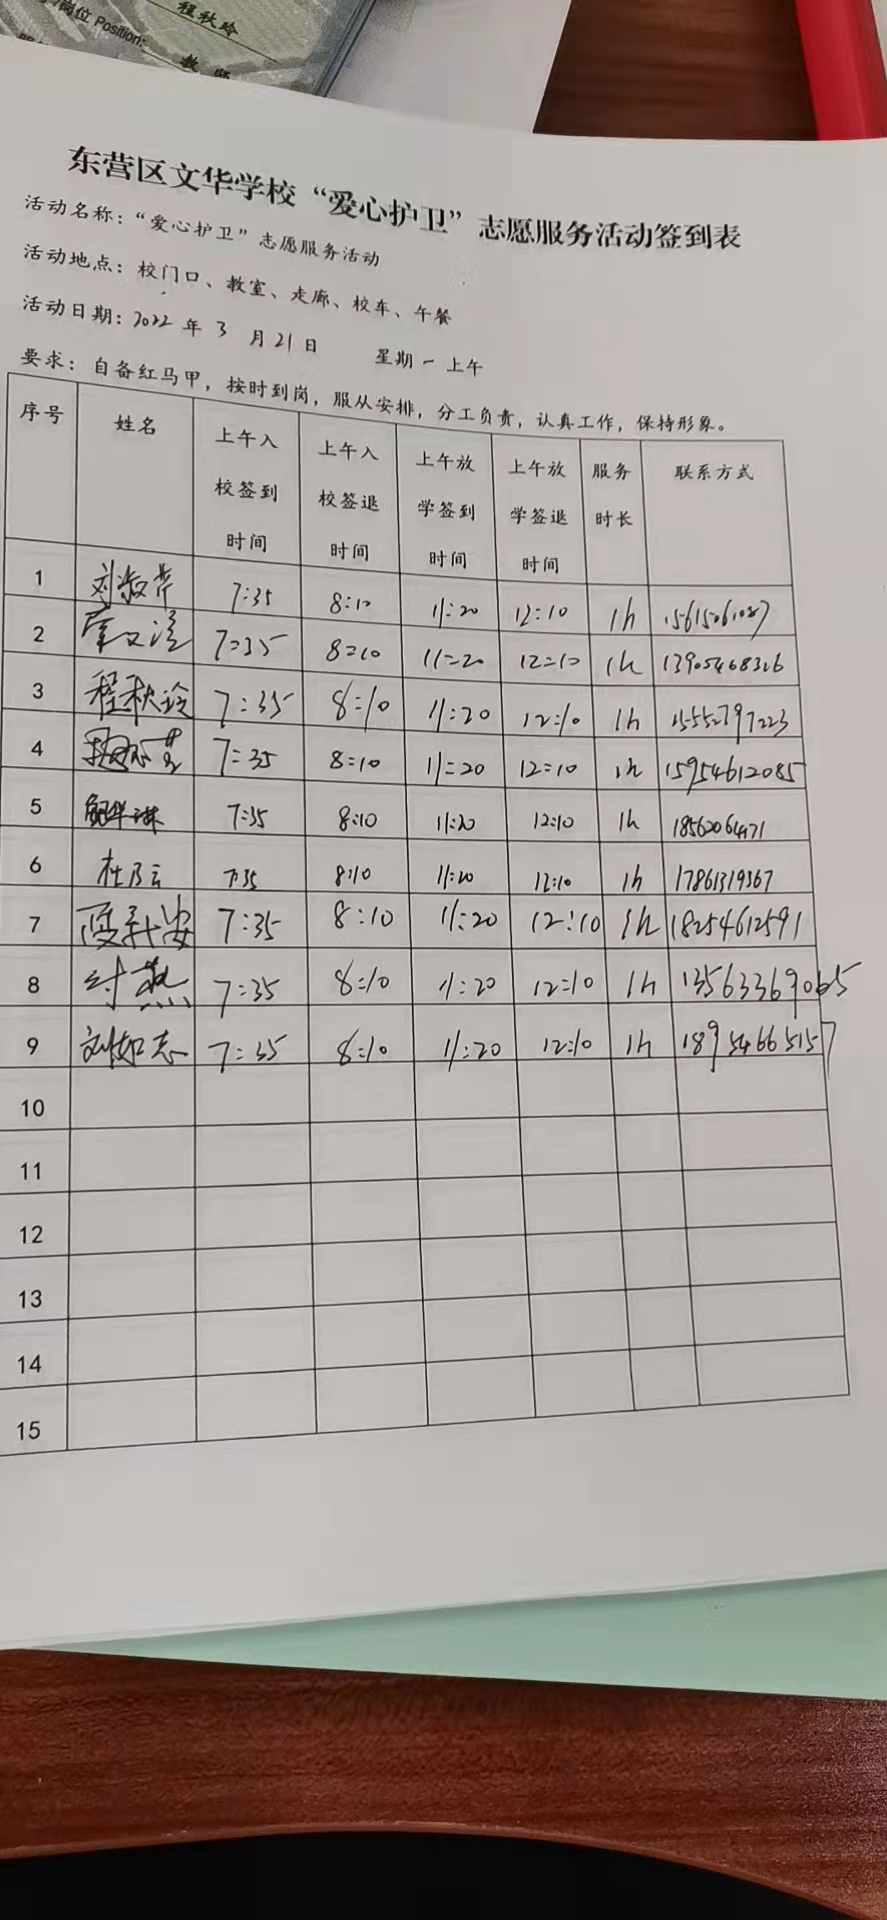 岗位 Position:
程秋玲
教 师
东营区文华学校“爱心护卫”志愿服务活动签到表
活动名称：“爱心护卫”志愿服务活动
活动地点：校门口、教室、走廊、校车、午餐
活动日期：2022 年 3 月 21 日 星期一 上午
要求：自备红马甲，按时到岗，服从安排，分工负责，认真工作，保持形象。
序号 姓名 上午入校签到时间 上午入校签退时间 上午放学签到时间 上午放学签退时间 服务时长 联系方式
1 刘淑芹 7:35 8:10 11:20 12:10 1h
2 7:35 8:10 11:20 12:10 1h 13905468326
3 程秋玲 7:35 8:10 11:20 12:10 1h 15552797223
4 7:35 8:10 11:20 12:10 1h 15954612085
5 7:35 8:10 11:20 12:10 1h
6 杜乃云 7:35 8:10 11:20 12:10 1h 17861319367
7 7:35 8:10 11:20 12:10 1h 18254612591
8 付燕 7:35 8:10 11:20 12:10 1h 13563369065
9 刘如志 7:35 8:10 11:20 12:10 1h 18954665157
10
11
12
13
14
15